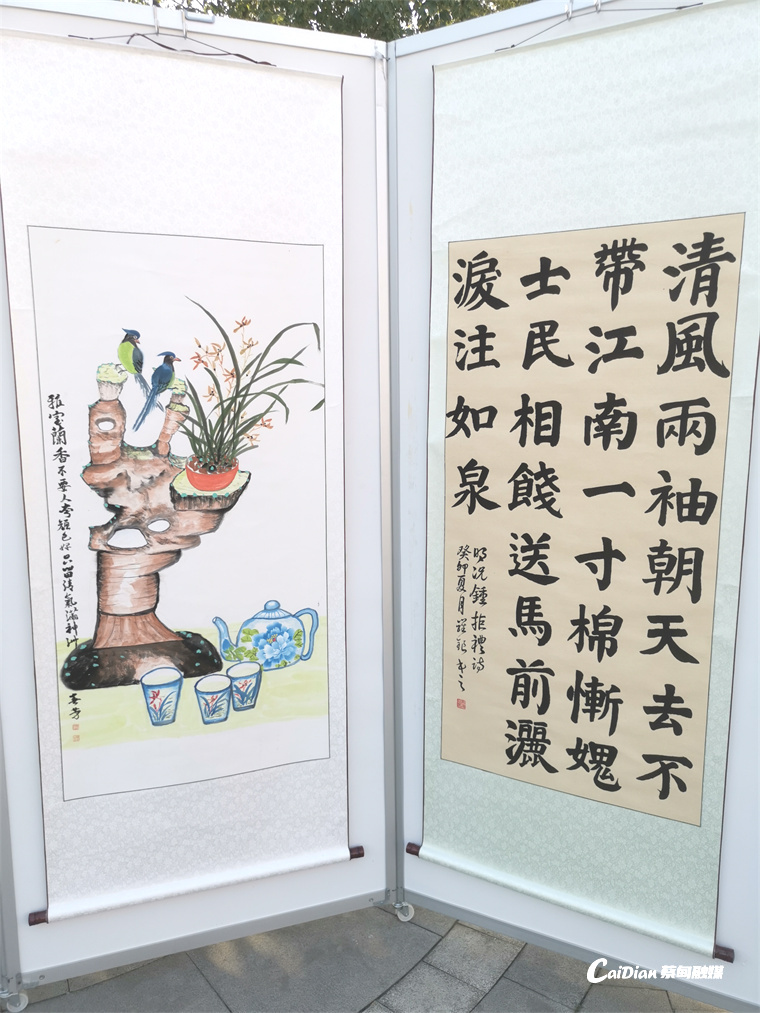 雅室蘭香不要人夸顏色好只留清氣滿神州
清風兩袖朝天去不
帶江南一寸棉慚媿
士民相餞送馬前灑
淚注如泉
明況鍾拒禮詩
癸卯夏月
CaiDian 蔡甸融媒